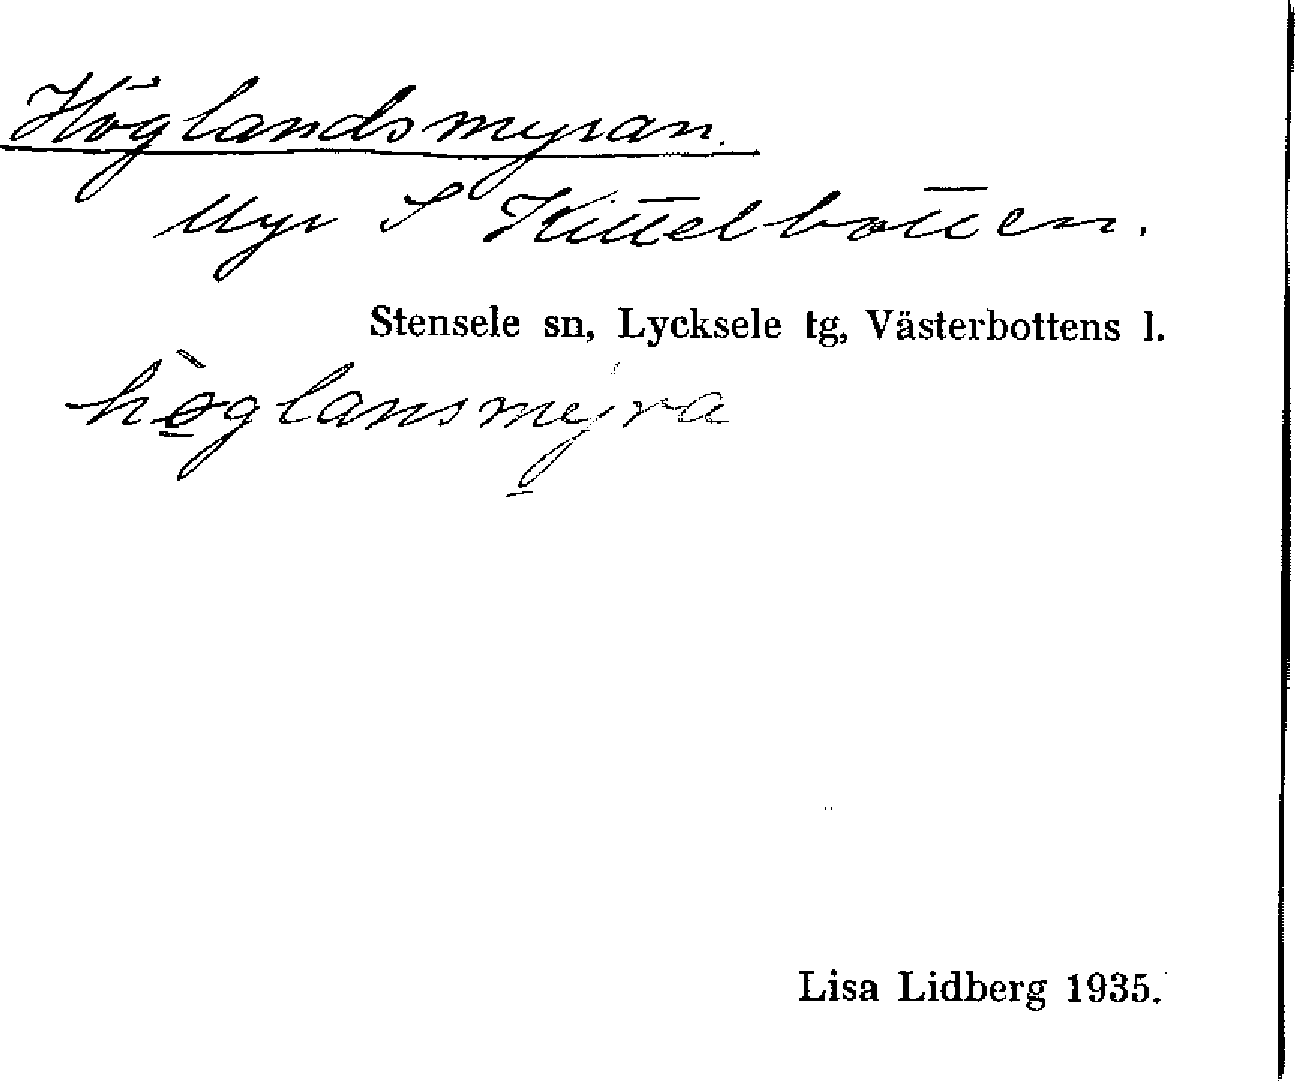 Höglandsmyran.
Myr S Kittelbotten.
Stensele sn, Lycksele tg, Västerbottens l.
hø̱̀glansmy̱ra
Lisa Lidberg 1935.